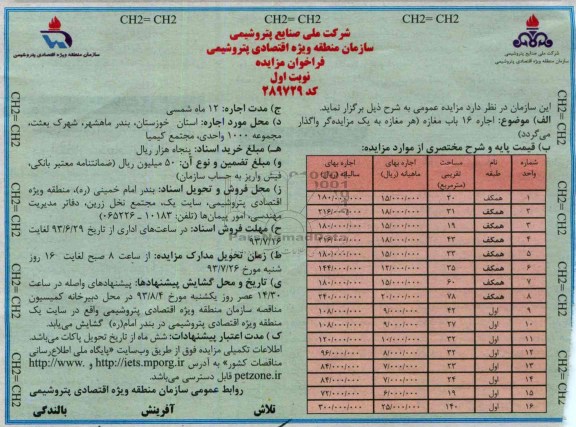 CH2= CH2 CH2= CH2 CH2= CH2
شرکت ملی صنایع پتروشیمی
سازمان منطقه ویژه اقتصادی پتروشیمی
فراخوان مزایده
نوبت اول
کد ۲۸۹۷۲۹
شرکت ملی صنایع پتروشیمی
سازمان منطقه ویژه اقتصادی پتروشیمی
سازمان منطقه ویژه اقتصادی پتروشیمی
این سازمان در نظر دارد مزایده عمومی به شرح ذیل برگزار نماید.
الف) موضوع: اجاره ۱۶ باب مغازه (هر مغازه به یک مزایده‌گر واگذار
می‌گردد)
ب) قیمت پایه و شرح مختصری از موارد مزایده:
شماره واحد | نام طبقه | مساحت تقریبی (مترمربع) | اجاره بهای ماهیانه (ریال) | اجاره بهای سالیانه (ریال)
۱ | همکف | ۲۰ | ۱۵/۰۰۰/۰۰۰ | ۱۸۰/۰۰۰/۰۰۰
۲ | همکف | ۳۱ | ۱۸/۰۰۰/۰۰۰ | ۲۱۶/۰۰۰/۰۰۰
۳ | همکف | ۱۹ | ۱۵/۰۰۰/۰۰۰
۴ | همکف | ۴۳ | ۱۸/۰۰۰/۰۰۰
۵ | همکف | ۳۳ | ۱۵/۰۰۰/۰۰۰ | ۱۸۰/۰۰۰/۰۰۰
۶ | همکف | ۳۵ | ۱۲/۰۰۰/۰۰۰ | ۱۴۴/۰۰۰/۰۰۰
۷ | همکف | ۶۰ | ۱۵/۰۰۰/۰۰۰ | ۱۸۰/۰۰۰/۰۰۰
۸ | همکف | ۷۸ | ۲۰/۰۰۰/۰۰۰ | ۲۴۰/۰۰۰/۰۰۰
۹ | اول | ۴۲ | ۹/۰۰۰/۰۰۰ | ۱۰۸/۰۰۰/۰۰۰
۱۰ | اول | ۲۷ | ۹/۰۰۰/۰۰۰ | ۱۰۸/۰۰۰/۰۰۰
۱۱ | اول | ۳۲ | ۱۰/۰۰۰/۰۰۰ | ۱۲۰/۰۰۰/۰۰۰
۱۲ | اول | ۳۲ | ۸/۰۰۰/۰۰۰ | ۹۶/۰۰۰/۰۰۰
۱۳ | اول | ۲۳ | ۷/۰۰۰/۰۰۰ | ۸۴/۰۰۰/۰۰۰
۱۴ | اول | ۲۴ | ۷/۰۰۰/۰۰۰ | ۸۴/۰۰۰/۰۰۰
۱۵ | اول | ۱۹ | ۶/۰۰۰/۰۰۰ | ۷۲/۰۰۰/۰۰۰
۱۶ | اول | ۱۴۰ | ۲۵/۰۰۰/۰۰۰ | ۳۰۰/۰۰۰/۰۰۰
ج) مدت اجاره: ۱۲ ماه شمسی
د) محل مورد اجاره: استان خوزستان، بندر ماهشهر، شهرک بعثت،
مجموعه ۱۰۰۰ واحدی، مجتمع کیمیا
هـ) مبلغ خرید اسناد: پنجاه هزار ریال
و) مبلغ تضمین و نوع آن: ۵۰ میلیون ریال (ضمانتنامه معتبر بانکی،
فیش واریز به حساب سازمان)
ز) محل فروش و تحویل اسناد: بندر امام خمینی (ره)، منطقه ویژه
اقتصادی پتروشیمی، سایت یک، مجتمع نخل زرین، دفاتر مدیریت
مهندسی، امور پیمان‌ها (تلفن: ۱۰۱۸۳ – ۰۶۵۲۲۶)
ح) مهلت فروش اسناد: در ساعت‌های اداری از تاریخ ۹۳/۶/۲۹ لغایت
۹۳/۷/۱۶
ط) زمان تحویل مدارک مزایده: از ساعت ۸ صبح لغایت ۱۶ روز
شنبه مورخ ۹۳/۷/۲۶
ی) تاریخ و محل گشایش پیشنهادها: پیشنهادهای واصله در ساعت
۱۴/۳۰ عصر روز یکشنبه مورخ ۹۳/۸/۴ در محل دبیرخانه کمیسیون
مناقصه سازمان منطقه ویژه اقتصادی پتروشیمی واقع در سایت یک
منطقه ویژه اقتصادی پتروشیمی در بندر امام(ره) گشایش می‌یابد.
ک) مدت اعتبار پیشنهادات: شش ماه از تاریخ تحویل پاکات می‌باشد.
اطلاعات تکمیلی مزایده فوق از طریق وب‌سایت «پایگاه ملی اطلاع‌رسانی
مناقصات کشور» به آدرس http://iets.mporg.ir و http://www.
petzone.ir قابل دسترسی می‌باشد.
روابط عمومی سازمان منطقه ویژه اقتصادی پتروشیمی
تلاش آفرینش بالندگی
CH2= CH2
CH2= CH2
CH2= CH2
CH2= CH2
CH2= CH2
CH2= CH2
CH2= CH2
CH2= CH2